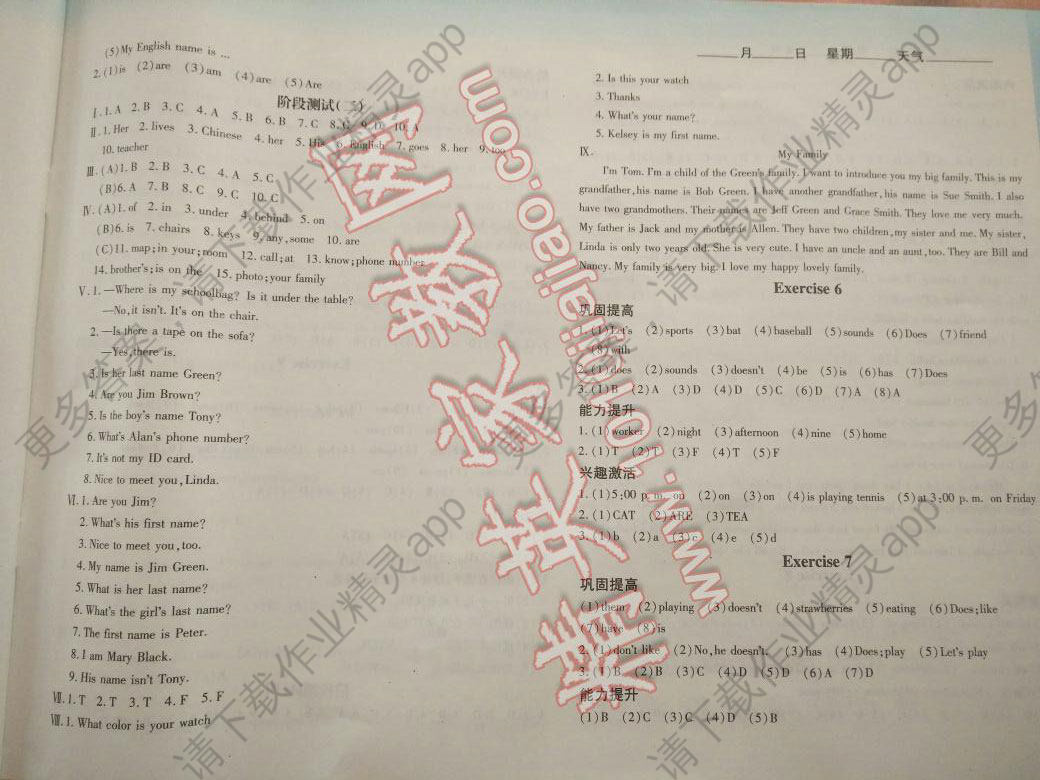 (5)My English name is ...
2.(1)is (2)are (3)am (4)are (5)Are
阶段测试(二)
Ⅰ.1.A 2.B 3.C 4.A 5.B 6.B 7.C 8.C 9.D 10.A
Ⅱ.1.Her 2.lives 3.Chinese 4.her 5.His 6.English 7.goes 8.her 9.too
10.teacher
Ⅲ.(A)1.B 2.B 3.C 4.A 5.C
(B)6.A 7.B 8.C 9.C 10.C
Ⅳ.(A)1.of 2.in 3.under 4.behind 5.on
(B)6.is 7.chairs 8.keys 9.any,some 10.are
(C)11.map;in your;room 12.call;at 13.know;phone number
14.brother's;is on the 15.photo;your family
Ⅴ.1.—Where is my schoolbag? Is it under the table?
—No,it isn't. It's on the chair.
2.—Is there a tape on the sofa?
—Yes,there is.
3.Is her last name Green?
4.Are you Jim Brown?
5.Is the boy's name Tony?
6.What's Alan's phone number?
7.It's not my ID card.
8.Nice to meet you,Linda.
Ⅵ.1.Are you Jim?
2.What's his first name?
3.Nice to meet you,too.
4.My name is Jim Green.
5.What is her last name?
6.What's the girl's last name?
7.The first name is Peter.
8.I am Mary Black.
9.His name isn't Tony.
Ⅶ.1.T 2.T 3.T 4.F 5.F
Ⅷ.1.What color is your watch
月 日 星期 天气
2. Is this your watch
3. Thanks
4. What's your name?
5. Kelsey is my first name.
Ⅸ.
My Family
I'm Tom. I'm a child of the Green's family. I want to introduce you my big family. This is my
grandfather,his name is Bob Green. I have another grandfather,his name is Sue Smith. I also
have two grandmothers. Their names are Jeff Green and Grace Smith. They love me very much.
My father is Jack and my mother is Allen. They have two children,my sister and me. My sister,
Linda is only two years old. She is very cute. I have an uncle and an aunt,too. They are Bill and
Nancy. My family is very big. I love my happy lovely family.
Exercise 6
巩固提高
1.(1)Let's (2)sports (3)bat (4)baseball (5)sounds (6)Does (7)friend
(8)with
2.(1)does (2)sounds (3)doesn't (4)be (5)is (6)has (7)Does
3.(1)B (2)A (3)D (4)D (5)C (6)D (7)A (8)A
能力提升
1.(1)worker (2)night (3)afternoon (4)nine (5)home
2.(1)T (2)T (3)F (4)T (5)F
兴趣激活
1.(1)5:00 p.m. on (2)on (3)on (4)is playing tennis (5)at 3:00 p. m. on Friday
2.(1)CAT (2)ARE (3)TEA
3.(1)b (2)a (3)c (4)e (5)d
Exercise 7
巩固提高
(1)them (2)playing (3)doesn't (4)strawberries (5)eating (6)Does;like
(7)have (8)is
2.(1)don't like (2)No,he doesn't. (3)has (4)Does;play (5)Let's play
3.(1)B (2)B (3)C (4)D (5)D (6)A (7)D
能力提升
(1)B (2)C (3)C (4)D (5)B
精英家教网
www.1010jiajiao.com
更多答案，请下载作业精灵.app
更多答案，请下载作业精灵.app
请下载作业精灵.app
请下载作业精灵.app